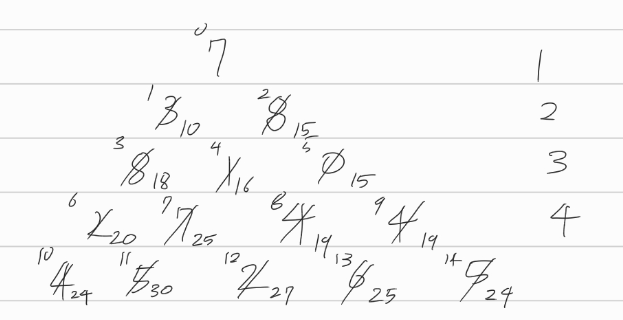 0 7 1
1 3 10 2 8 15 2
3 8 18 4 1 16 5 0 15 3
6 2 20 7 7 25 8 4 19 9 4 19 4
10 4 24 11 5 30 12 2 27 13 6 25 14 5 24